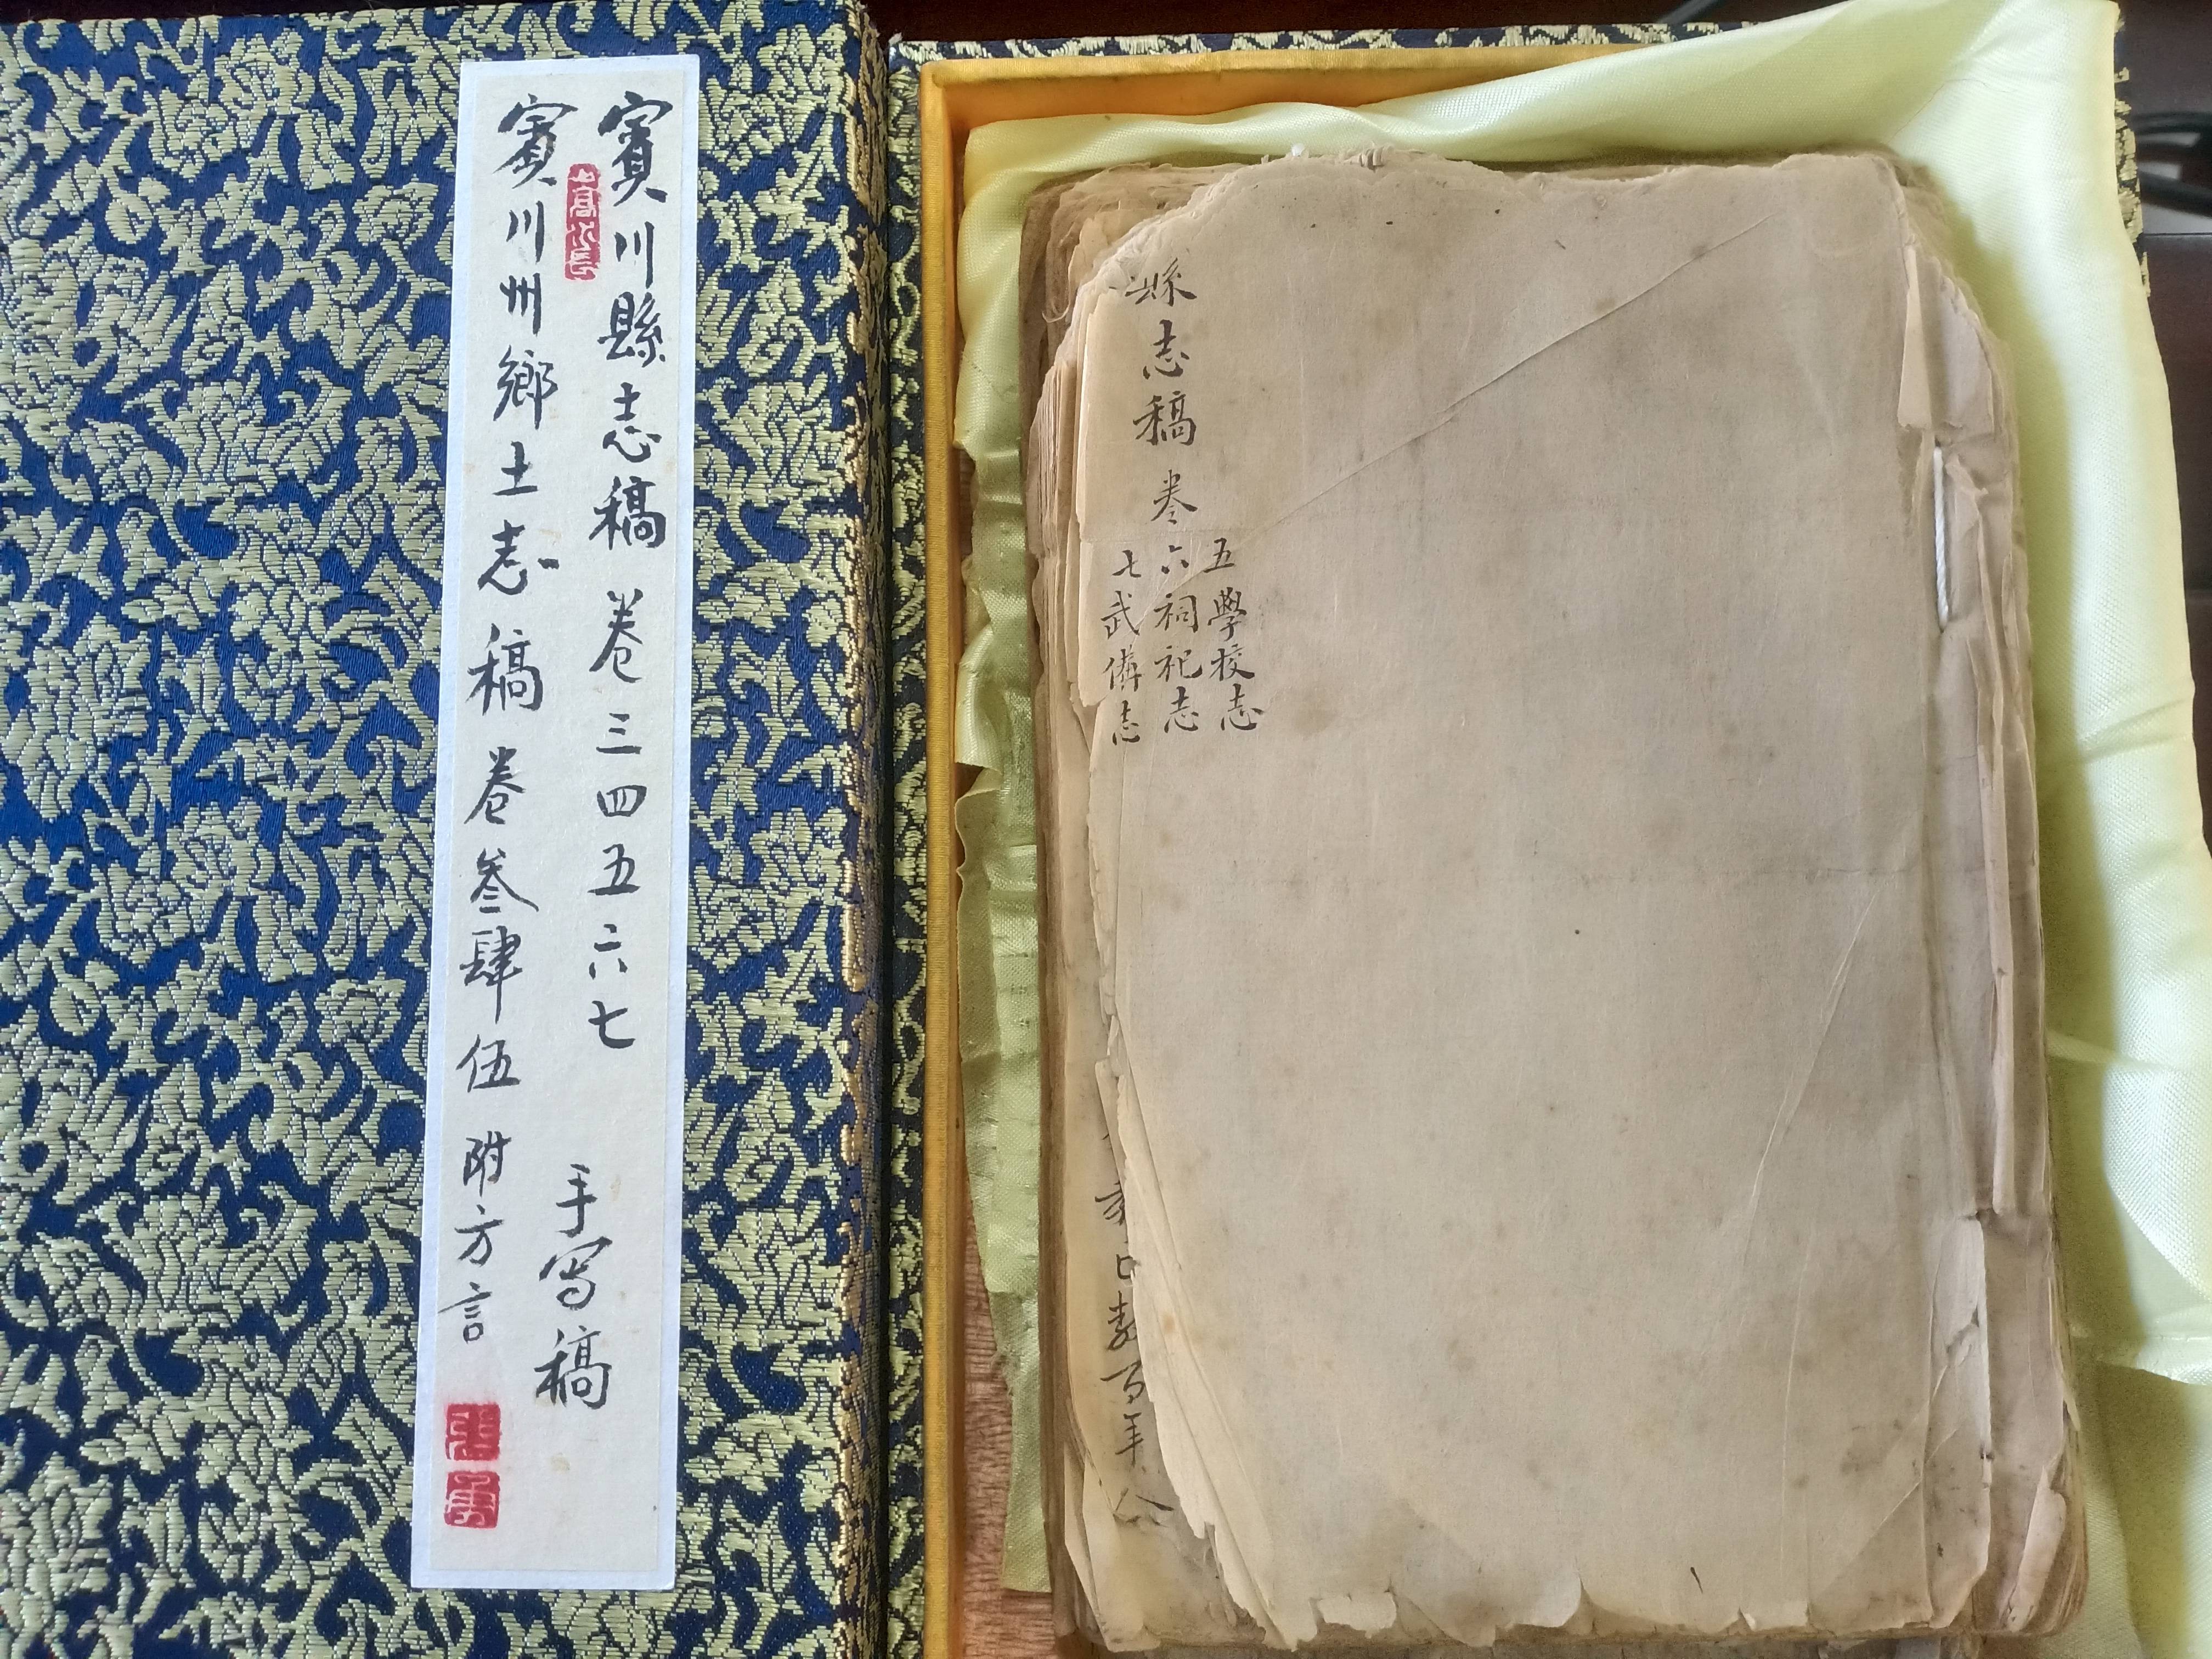 賓川縣志稿 卷三四五六七 手写稿
賓川州鄉土志稿 卷叁肆伍 附方言
縣志稿 卷
五學校志
六祠祀志
七武備志
口数百年